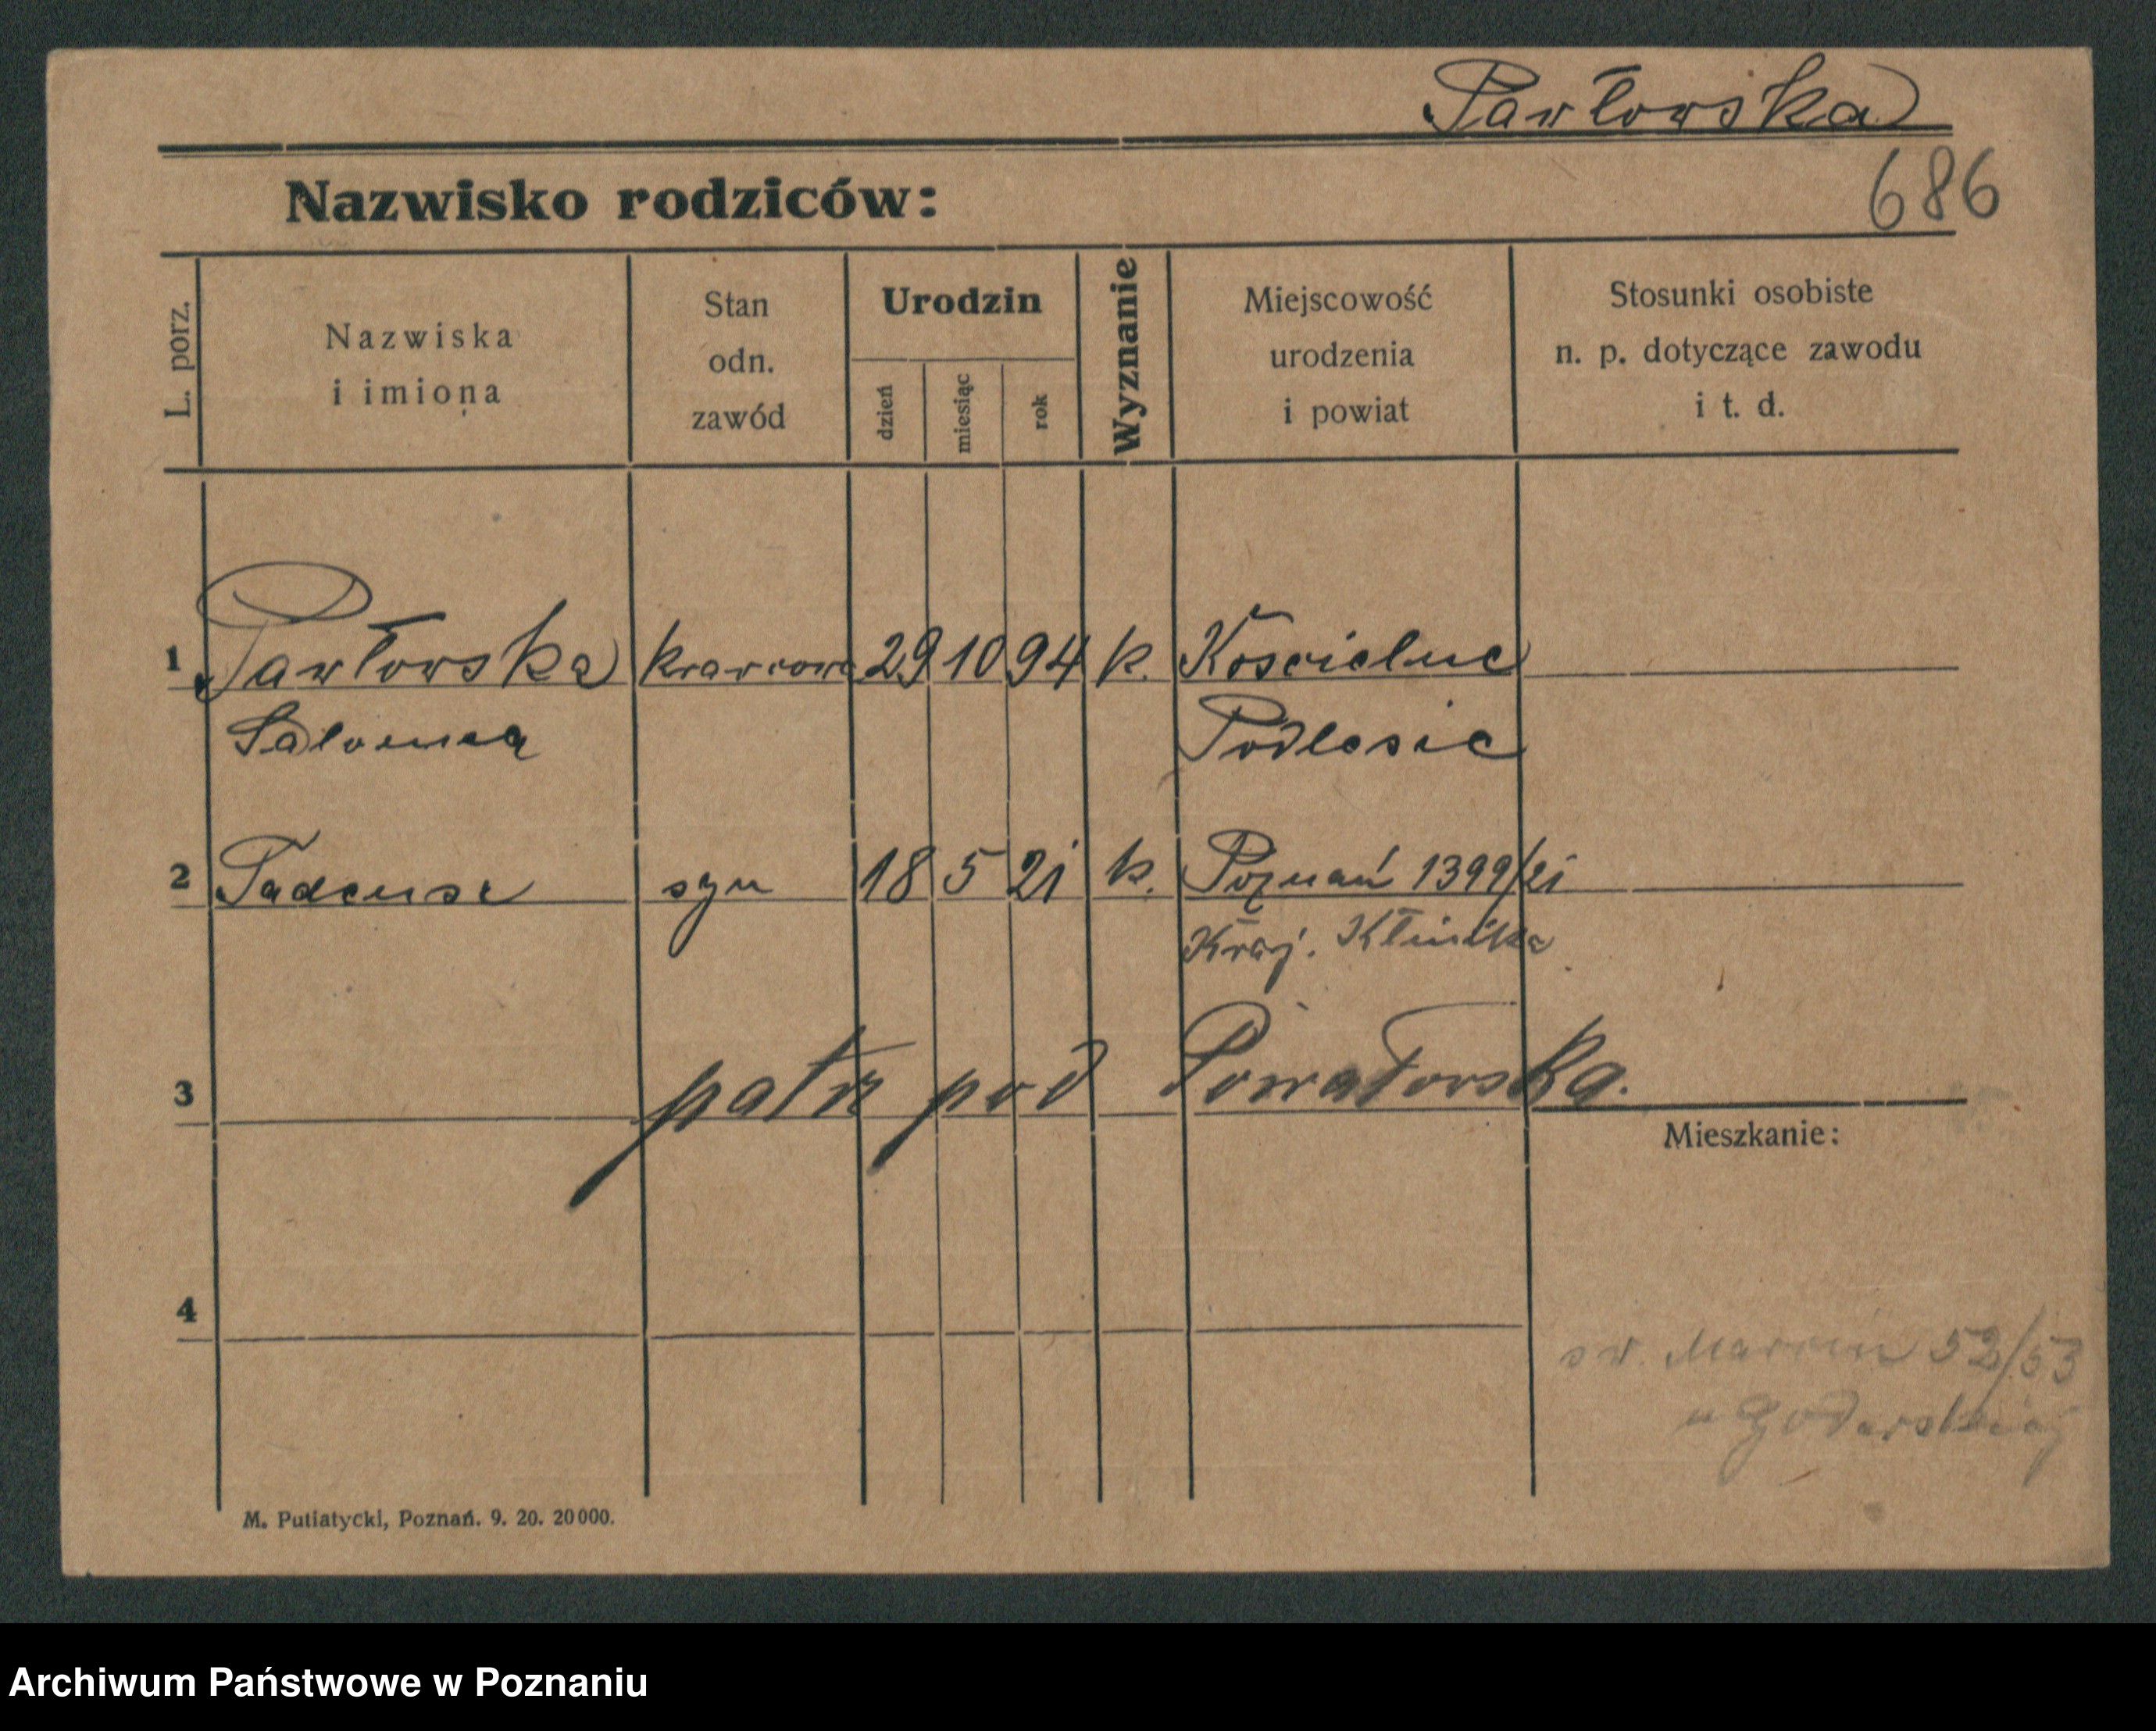 Pawłowska
686
Nazwisko rodziców:
L. porz.
Nazwiska
i imiona
Stan
odn.
zawód
Urodzin
dzień
miesiąc
rok
Wyznanie
Miejscowość
urodzenia
i powiat
Stosunki osobiste
n. p. dotyczące zawodu
i t. d.
1 Pawłowska krawcowa 29 10 94 k. Kościelne
Salomea Podlesie
2 Tadeusz syn 18 5 21 k. Poznań 1399/21
Kraj. Klinika
3 patrz pod Powałowska.
Mieszkanie:
4
św. Marcin 52/53
u
M. Putiatycki, Poznań. 9. 20. 20000.
Archiwum Państwowe w Poznaniu